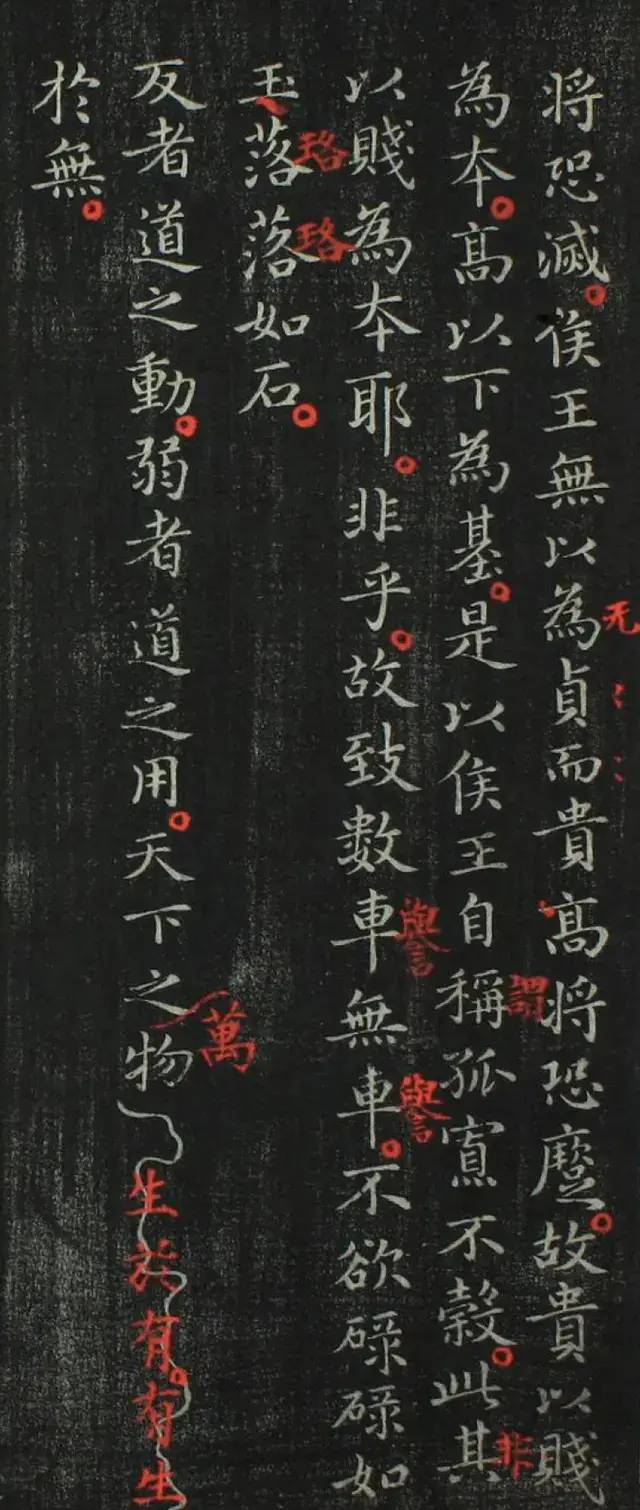 将恐滅侯王無以為貞而貴高将恐蹷故貴以賤
為本高以下為基是以侯王自稱孤寡不穀此其
以賤為本耶非乎故致數車無車不欲碌碌如
玉落落如石
反者道之動弱者道之用天下之物
於無
无
謂
非
譽
譽
珞
珞
萬
生於有有生